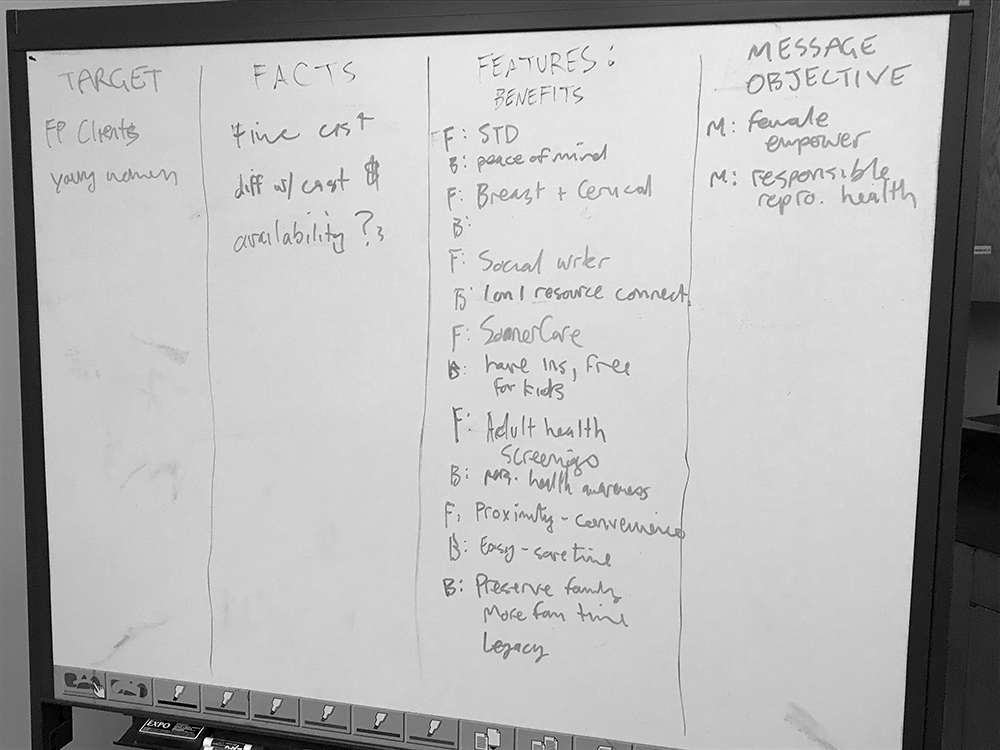 TARGET
FP Clients
young women
FACTS
Time cost
diff w/ cost $
availability ?
FEATURES:
BENEFITS
F: STD
B: peace of mind
F: Breast + Cervical
B:
F: Social wrker
B: 1 on 1 resource connect.
F: SoonerCare
B: have ins, free
for kids
F: Adult health
screenings
B: pers. health awareness
F: Proximity - convenience
B: Easy - save time
B: Preserve family
More fam time
Legacy
MESSAGE
OBJECTIVE
M: female
empower
M: responsible
repro. health
EXPO